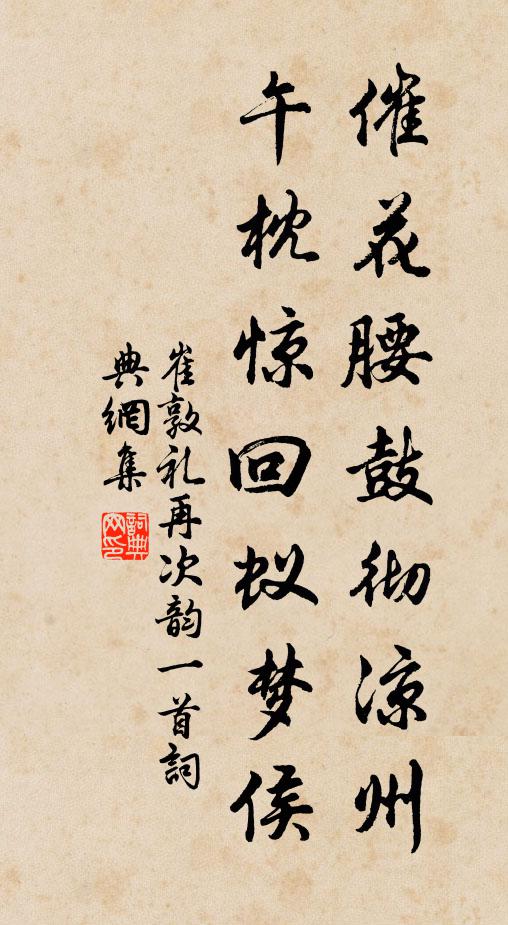 催花腰鼓彻凉州
午枕惊回蚁梦侯
崔敦礼再次韵一首詞
典網集
詞典
网印